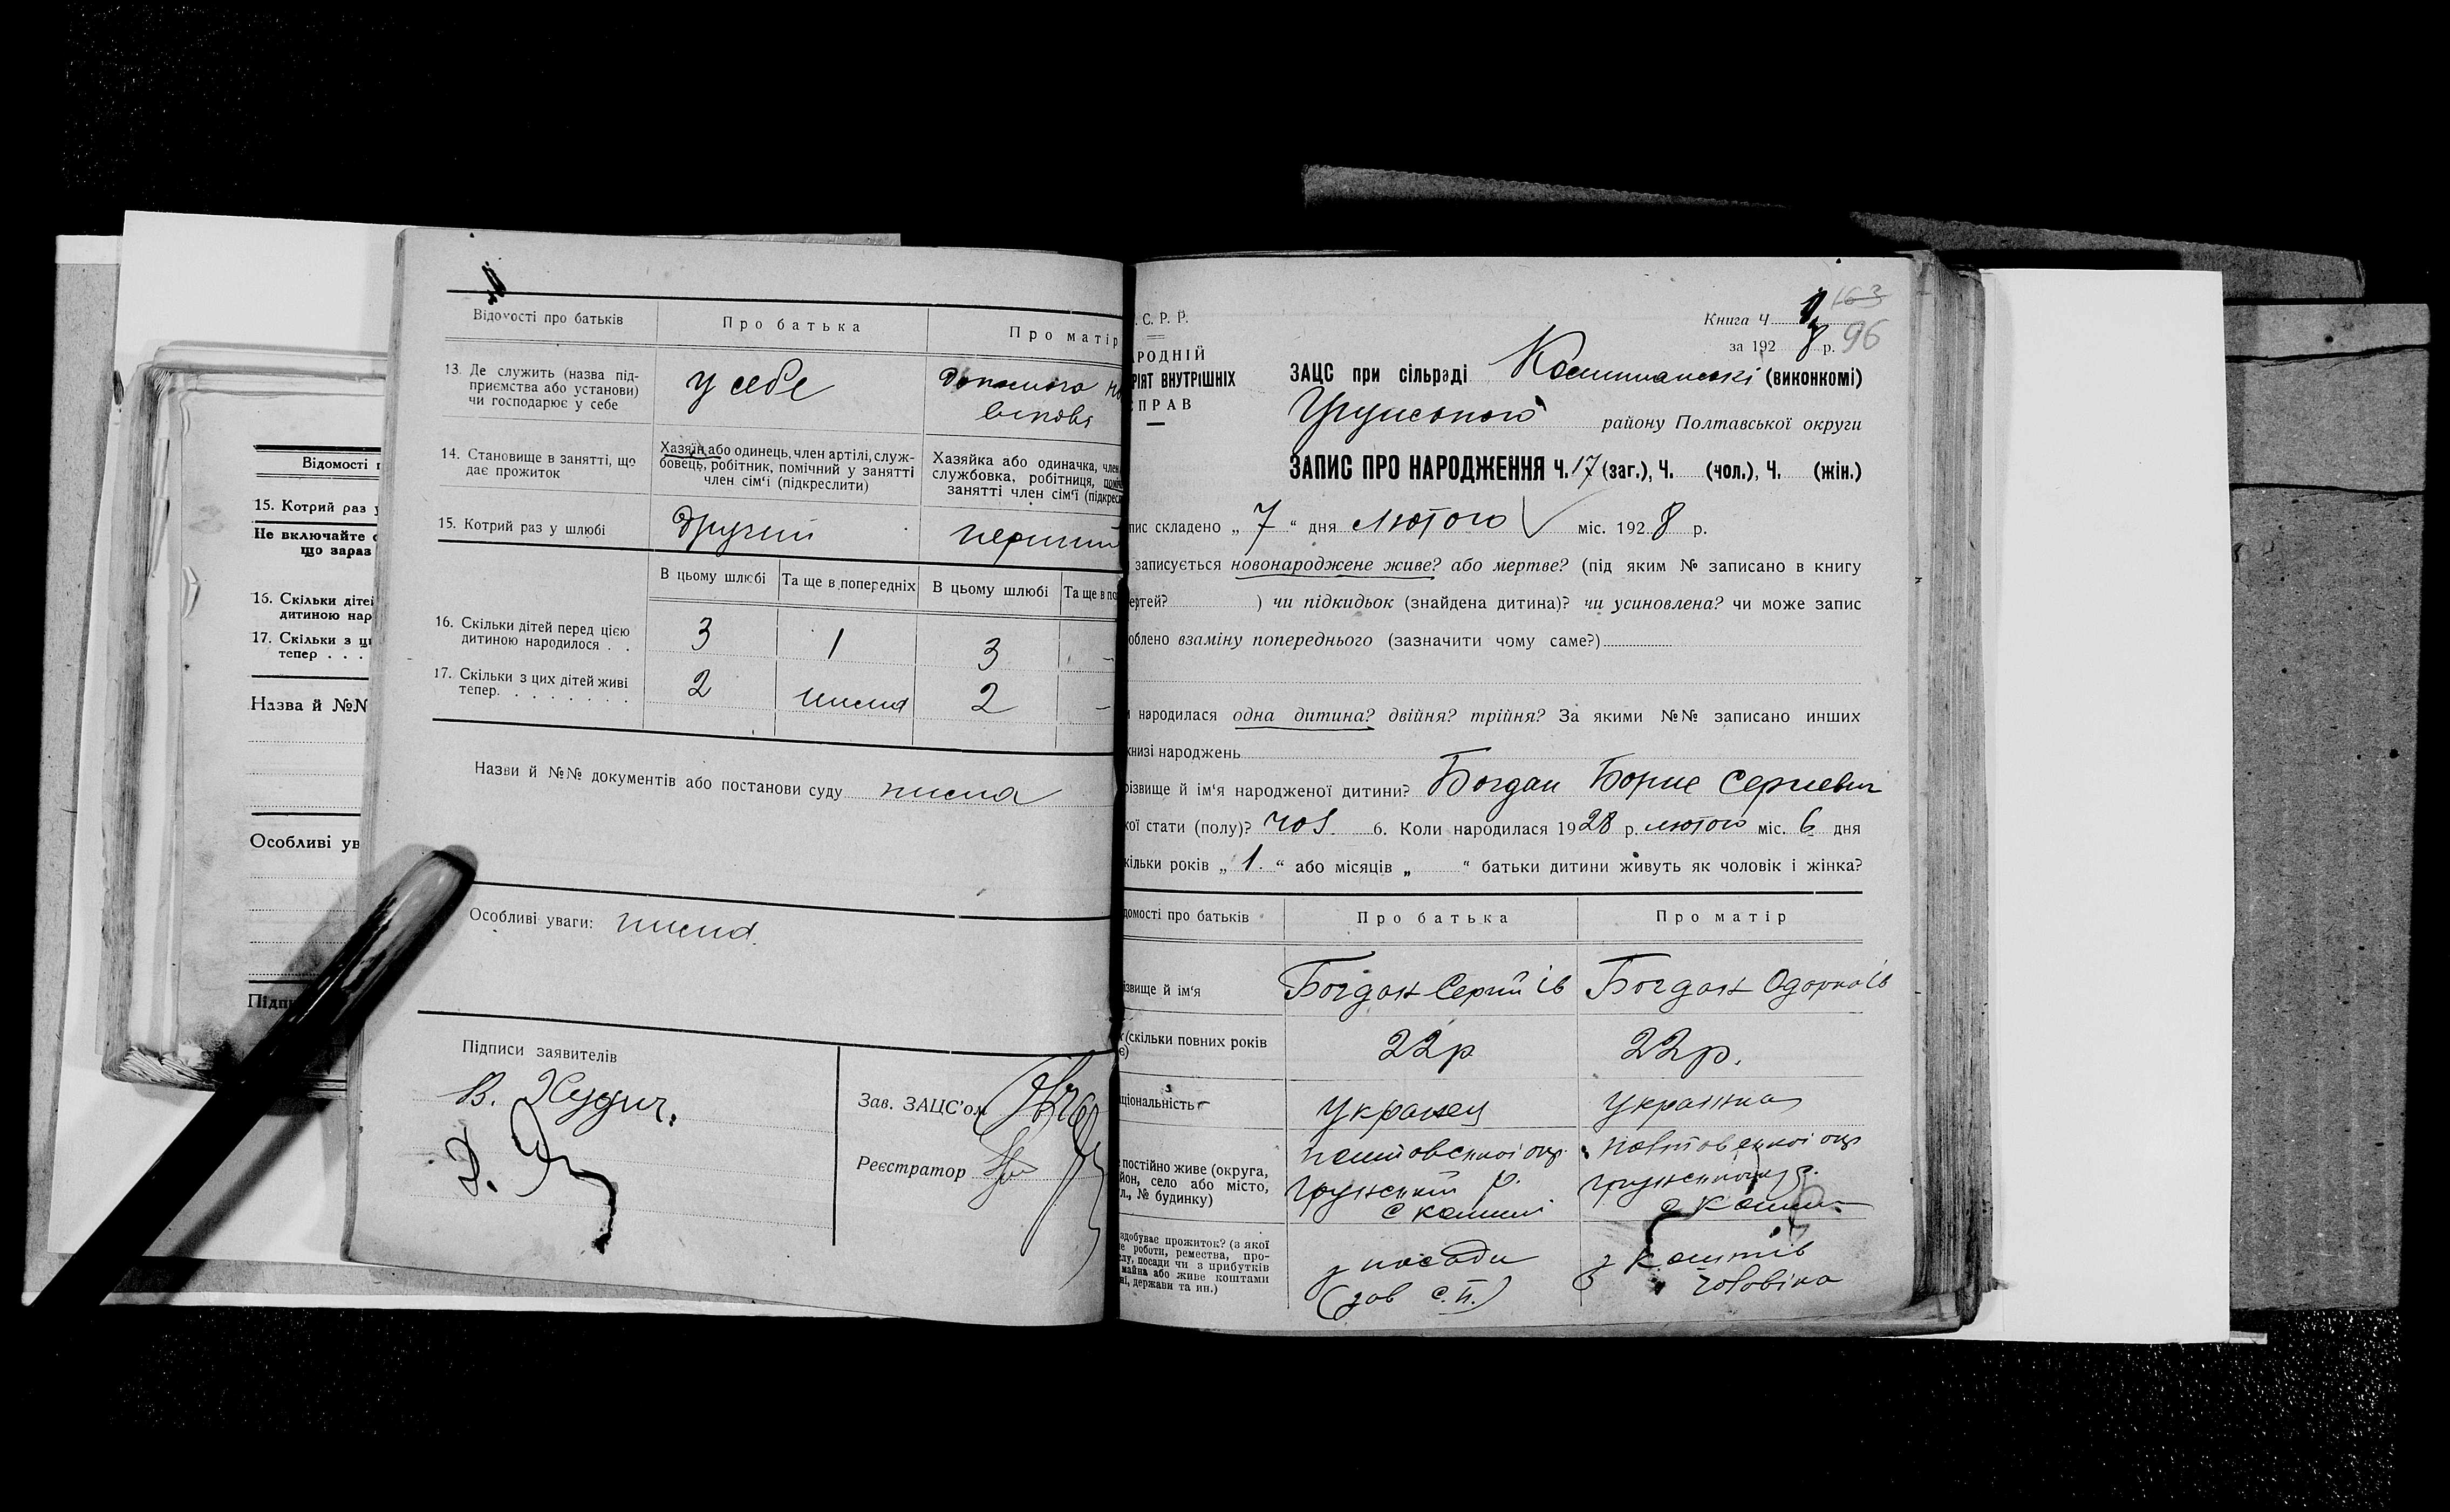 Відомості п
15. Котрий раз у
Не включайте
що зараз
16. Скільки дітей
дитиною нар
17. Скільки з ци
тепер . . .
Назва й №№
Особливі ув
Підпи
Відомості про батьків
Про батька
Про матір
13. Де служить (назва під-
приємства або установи)
чи господарює у себе
у себе
допомога
14. Становище в занятті, що
дає прожиток
Хазяїн або одинець, член артілі, служ-
бовець, робітник, помічний у занятті
член сім'ї (підкреслити)
Хазяйка або одиначка, член
службовка, робітниця, поміч
занятті член сім'ї (підкресл
15. Котрий раз у шлюбі
другий
перший
В цьому шлюбі
Та ще в попередніх
В цьому шлюбі
Та ще в по
16. Скільки дітей перед цією
дитиною народилося . .
3
1
3
-
17. Скільки з цих дітей живі
тепер. . . . . . . .
2
нема
2
-
Назви й №№ документів або постанови суду нема
Особливі уваги: нема
Підписи заявителів
В. Худич.
Зав. ЗАЦС'ом
Реєстратор
163
Книга Ч. 1
за 1928 р. 96
. С. Р. Р.
РОДНІЙ
РІЯТ ВНУТРІШНІХ
СПРАВ
ЗАЦС при сільраді (виконкомі)
Грунського району Полтавської округи
ЗАПИС ПРО НАРОДЖЕННЯ Ч. 17 (заг.), Ч. (чол.), Ч. (жін.)
пис складено „ 7 “ дня лютого міс. 1928 р.
записується новонароджене живе? або мертве? (під яким № записано в книгу
ертей? ) чи підкидьок (знайдена дитина)? чи усиновлена? чи може запис
облено взаміну попереднього (зазначити чому саме?)
народилася одна дитина? двійня? трійня? За якими №№ записано инших
книзі народжень
різвище й ім'я народженої дитини? Богдан Борис Сергієвич
кої стати (полу)? чол. 6. Коли народилася 1928 р. лютого міс. 6 дня
кільки років „ 1. “ або місяців „ “ батьки дитини живуть як чоловік і жінка?
домості про батьків
Про батька
Про матір
ізвище й ім'я
Богдан Сергій
Богдан Одарка
к (скільки повних років
є)
22р
22р.
ціональність
українец
українка
постійно живе (округа,
йон, село або місто,
л., № будинку)
полтовської окр.
грунський р.
полтовської окр
здобуває прожиток? (з якої
е роботи, ремества, про-
слу, посади чи з прибутків
майна або живе коштами
ні, держави та ин.)
з посади
(зав с.п.)
з коштів
чоловіка